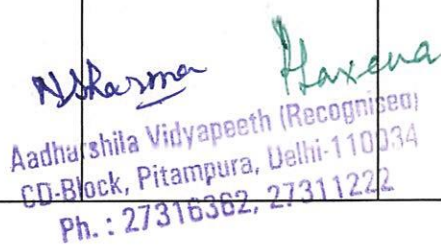 NSharma PSaxena
Aadharshila Vidyapeeth (Recognised)
CD-Block, Pitampura, Delhi-110034
Ph. : 27316362, 27311222